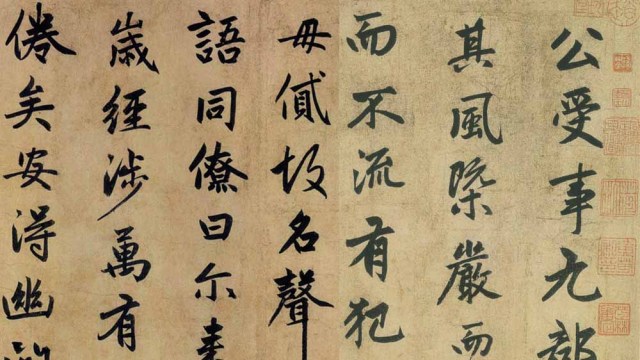 公受事九部
其風槩嚴而
而不流有犯
毋名聲
語同僚曰尓
歲經涉萬有
倦矣安得幽